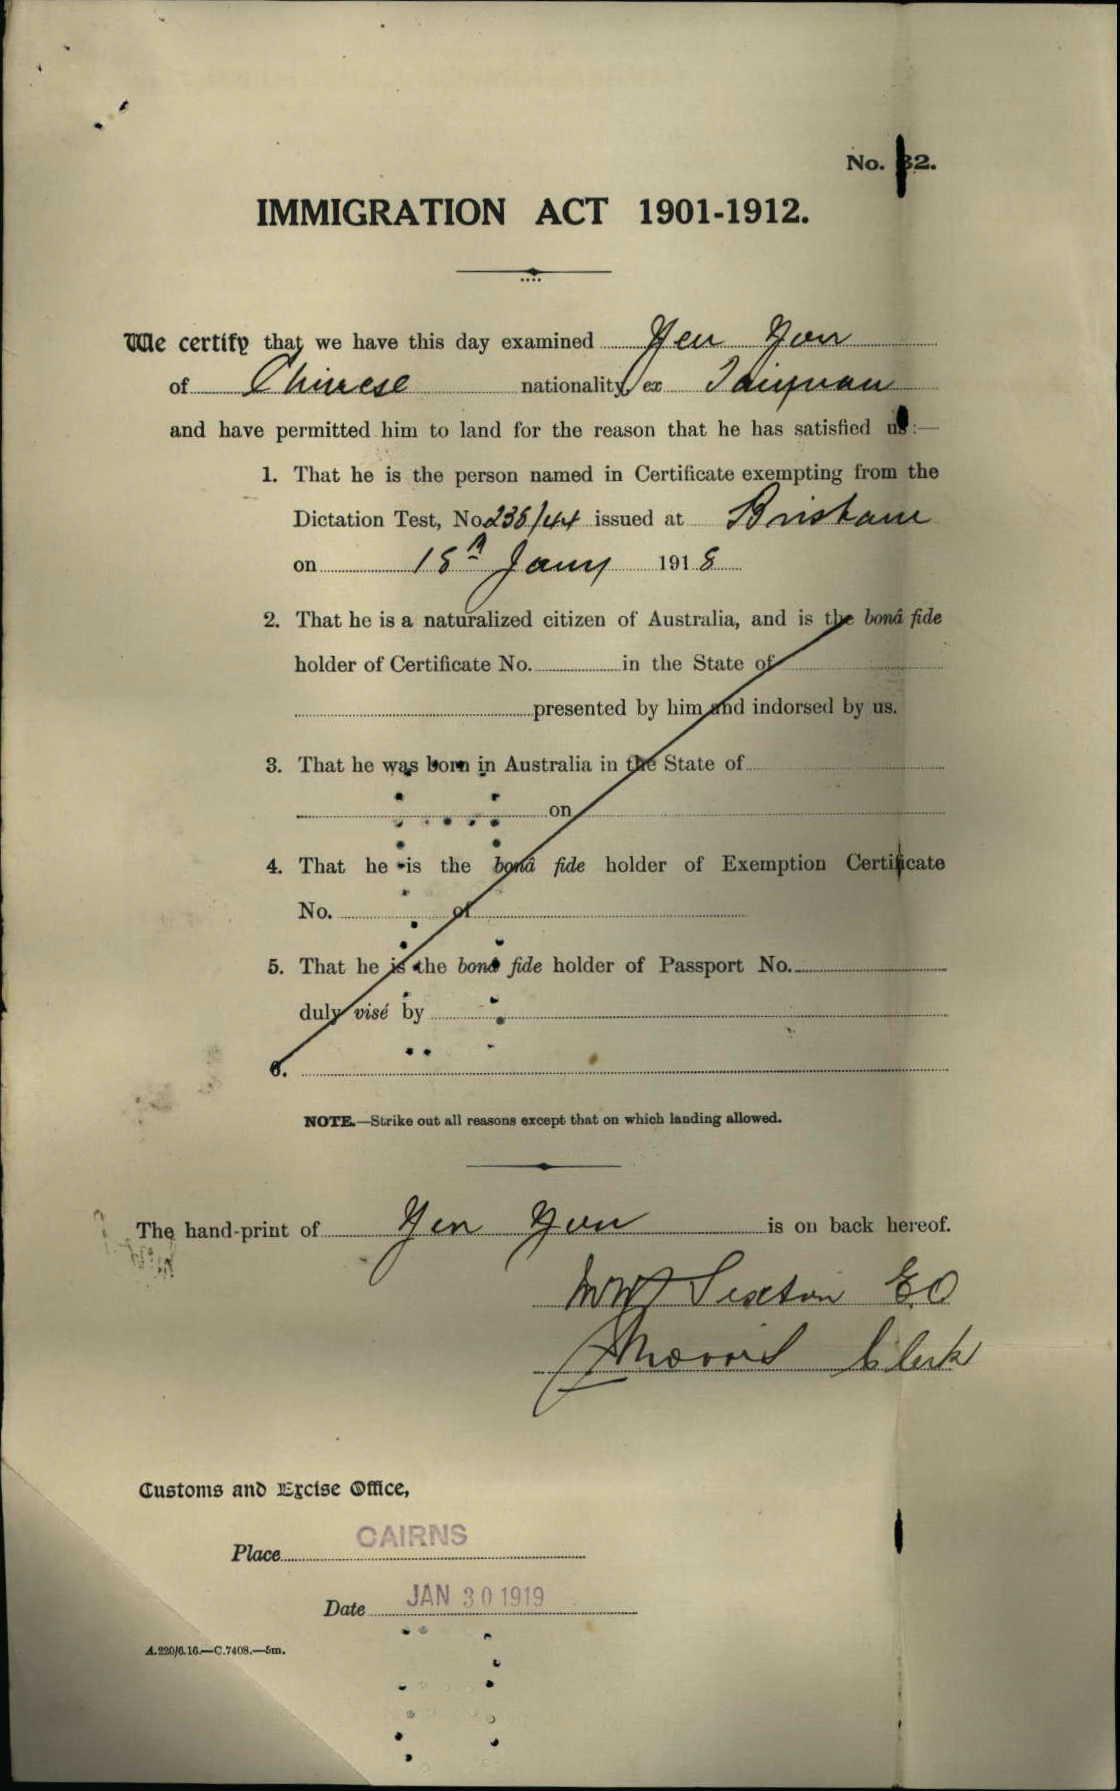 No. 32.
IMMIGRATION ACT 1901-1912.
We certify that we have this day examined Yen Yon
of Chinese nationality, ex Taiyuan
and have permitted him to land for the reason that he has satisfied us:—
1. That he is the person named in Certificate exempting from the
Dictation Test, No. 238/44 issued at Brisbane
on 18th Jany 1918
2. That he is a naturalized citizen of Australia, and is the bonâ fide
holder of Certificate No. in the State of
presented by him and indorsed by us.
3. That he was born in Australia in the State of
on
4. That he is the bonâ fide holder of Exemption Certificate
No. of
5. That he is the bonâ fide holder of Passport No.
duly visé by
6.
NOTE.—Strike out all reasons except that on which landing allowed.
The hand-print of Yen Yon is on back hereof.
Sexton E.O
Morris Clerk
Customs and Excise Office,
Place CAIRNS
Date JAN 30 1919
A.220/6.16.—C.7408.—5m.